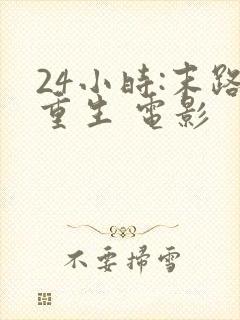 24小時:末路
重生 電影
不要掃雪